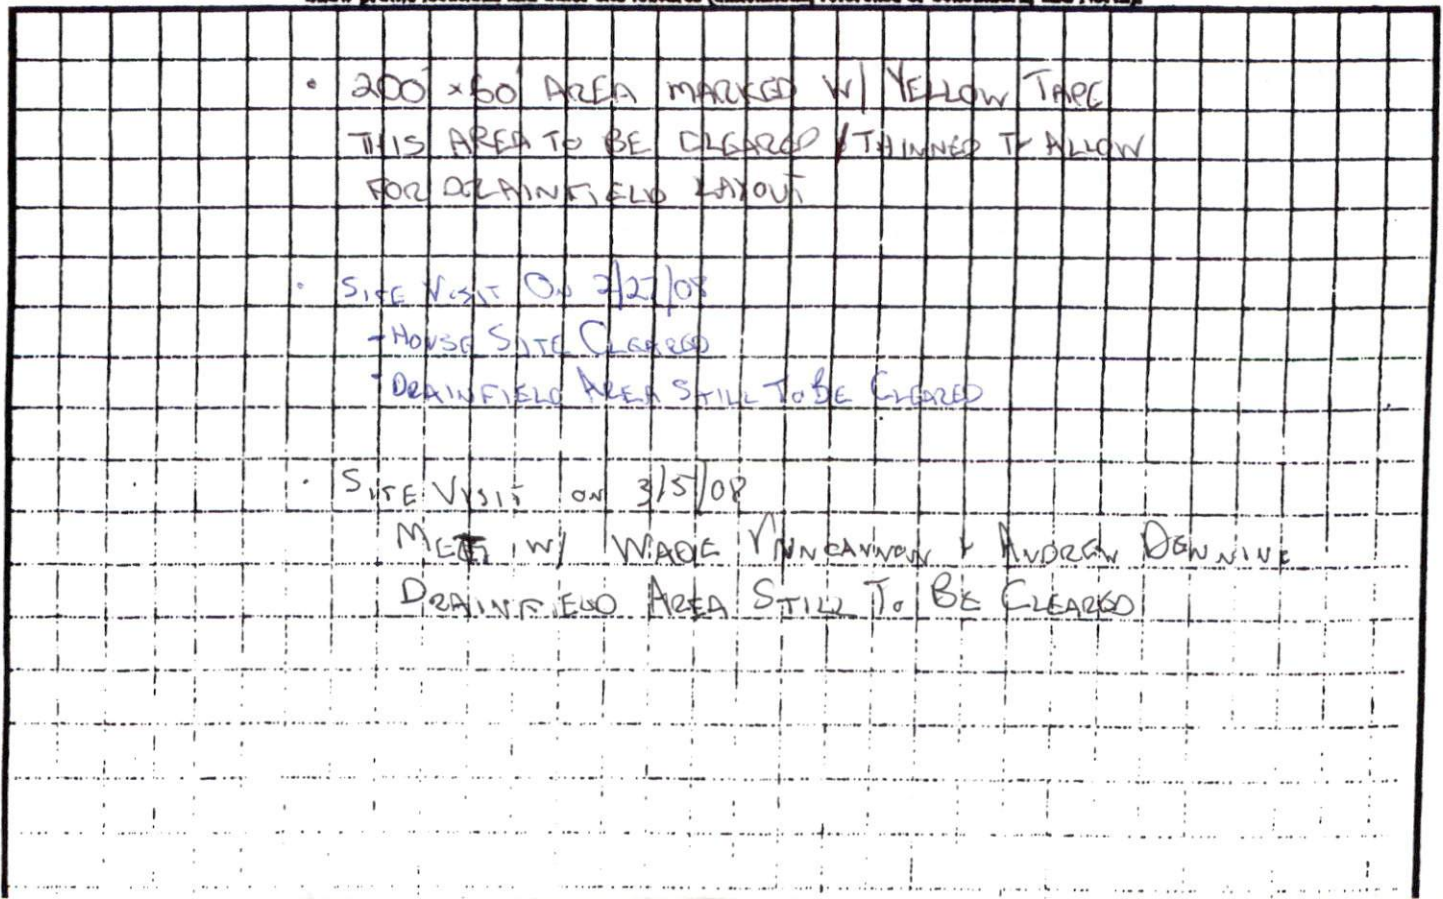 • 200' x 60' AREA MARKED W/ YELLOW TAPE
THIS AREA TO BE CLEARED / THINNED TO ALLOW
FOR DRAINFIELD LAYOUT
• SITE VISIT ON 2/27/08
- HOUSE SITE CLEARED
- DRAINFIELD AREA STILL TO BE CLEARED
• SITE VISIT ON 3/5/08
MEET W/ WADE VUNCANNON + ANDREW
DRAINFIELD AREA STILL TO BE CLEARED